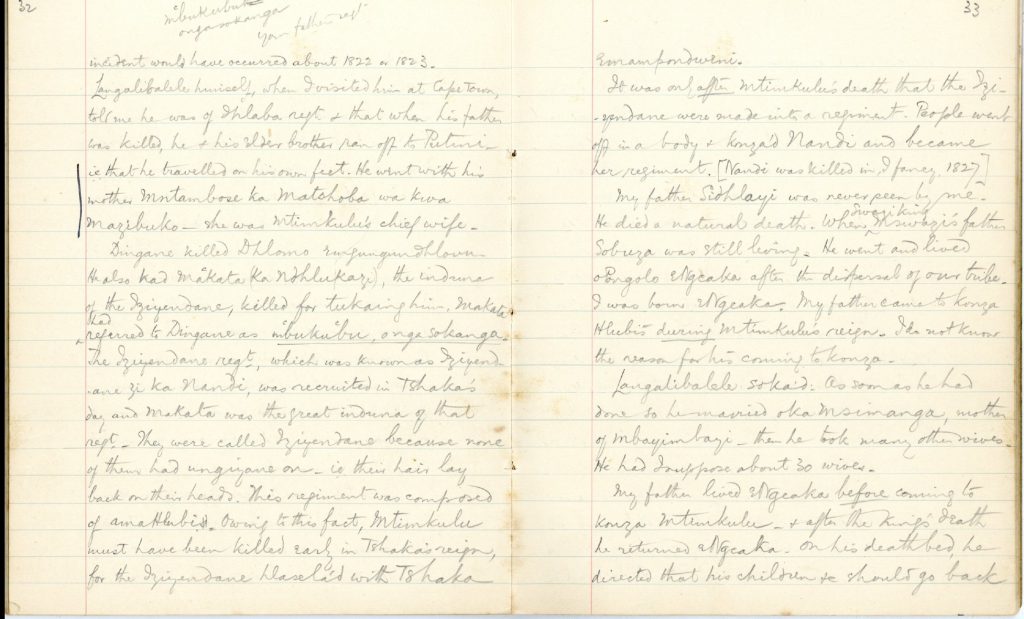 32
mbukubuku
onga sokanga
your father's regt
incident would have occurred about 1822 or 1823.
Langalibalele himself, when I visited him at Cape Town,
told me he was of Dhlaba regt & that when his father
was killed, he & his elder brother ran off to Putini –
ie that he travelled on his own feet. He went with his
mother Mntambose ka Matshoba wa kwa
Mazibuko – she was Mtimkulu's chief wife –
Dingane killed Dhlomo emgungundhlovu.
He also had Makata ka Ndhlukazi, the induna
of the Iziyendane, killed for tukaing him, Makata
had
referred to Dingane as mbukubu, onga sokanga –
The Iziyendane regt, which was known as Iziyend-
-ane zi ka Nandi, was recruited in Tshaka's
day and Makata was the great induna of that
regt – They were called Iziyendane because none
of them had ungiyane on – ie their hair lay
back on their heads. This regiment was composed
of amaHlubi. Owing to this fact, Mtimkulu
must have been killed early in Tshaka's reign,
for the Iziyendane hlasela'd with Tshaka
33
Emampondweni.
It was only after Mtimkulu's death that the Izi-
-yendane were made into a regiment. People went
off in a body & konza'd Nandi and became
her regiment. [Nandi was killed in, I fancy, 1827]
My father Sidhlayi was never seen by me –
Swazi king
He died a natural death. When Mswazi's father
Sobuza was still living – He went and lived
oPongolo eNgcaka after the dispersal of our tribe.
I was born eNgcaka. My father came to konza
Hlubi's during Mtimkulu's reign – I do not know
the reason for his coming to konza –
Langalibalele soka'd: As soon as he had
done so he married oka Msimanga, mother
of Mbayimbayi – then he took many other wives –
He had I suppose about 30 wives –
My father lived eNgcaka before coming to
konza Mtimkulu – & after the King's death
he returned eNgcaka – On his deathbed he
directed that his children &c should go back